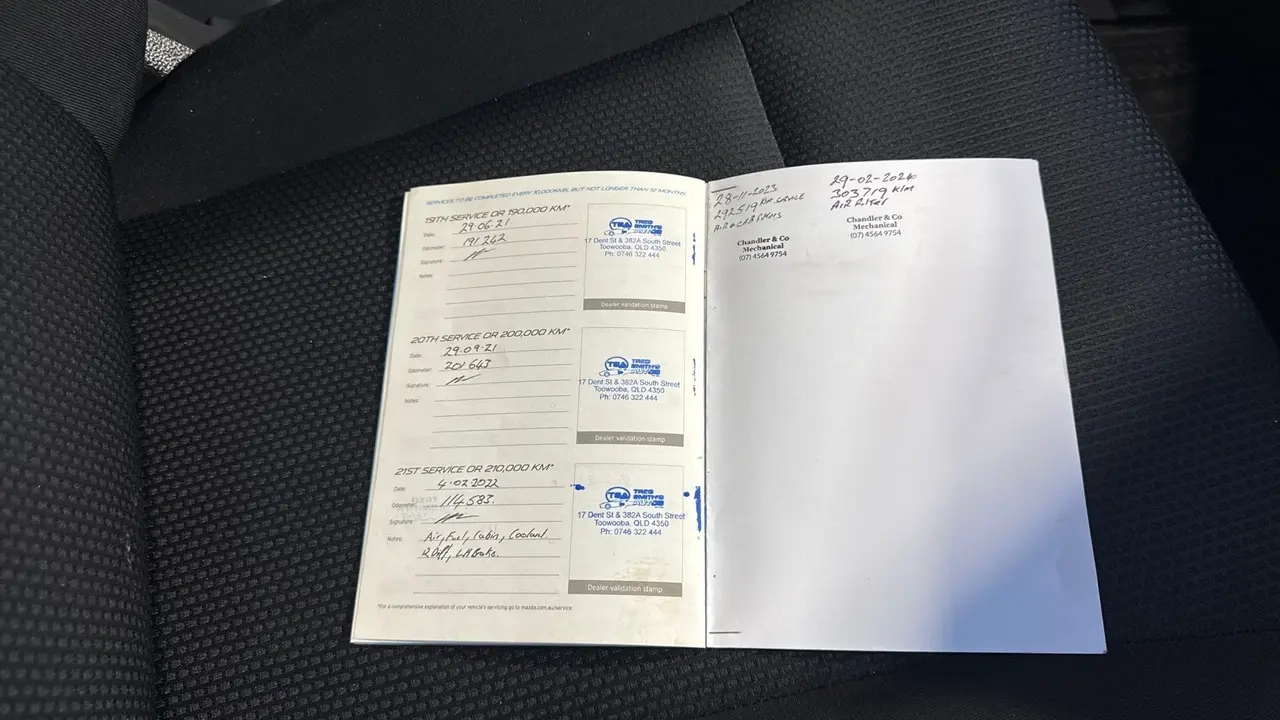 SERVICES TO BE COMPLETED EVERY 10,000KMS, BUT NOT LONGER THAN 12 MONTHS
19TH SERVICE OR 190,000 KM*
Date: 29.06.21
Odometer: 191,242
Signature:
Notes:
TSA TREG SMITH'S AUTOS
17 Dent St & 382A South Street
Toowooba, QLD 4350
Ph: 0746 322 444
Dealer validation stamp
20TH SERVICE OR 200,000 KM*
Date: 29.09.21
Odometer: 201,643
Signature:
Notes:
TSA TREG SMITH'S AUTOS
17 Dent St & 382A South Street
Toowooba, QLD 4350
Ph: 0746 322 444
Dealer validation stamp
21ST SERVICE OR 210,000 KM*
Date: 4.02.2022
Odometer: 114,583.
Signature:
Notes: Air, Fuel, Cabin, Coolant
R Diff,
TSA TREG SMITH'S AUTOS
17 Dent St & 382A South Street
Toowooba, QLD 4350
Ph: 0746 322 444
Dealer validation stamp
*For a comprehensive explanation of your vehicle's servicing go to mazda.com.au/service
28-11-2023
292519 KM SERVICE
Chandler & Co
Mechanical
(07) 4564 9754
29-02-2024
303719 KLM
AIR FILTER
Chandler & Co
Mechanical
(07) 4564 9754